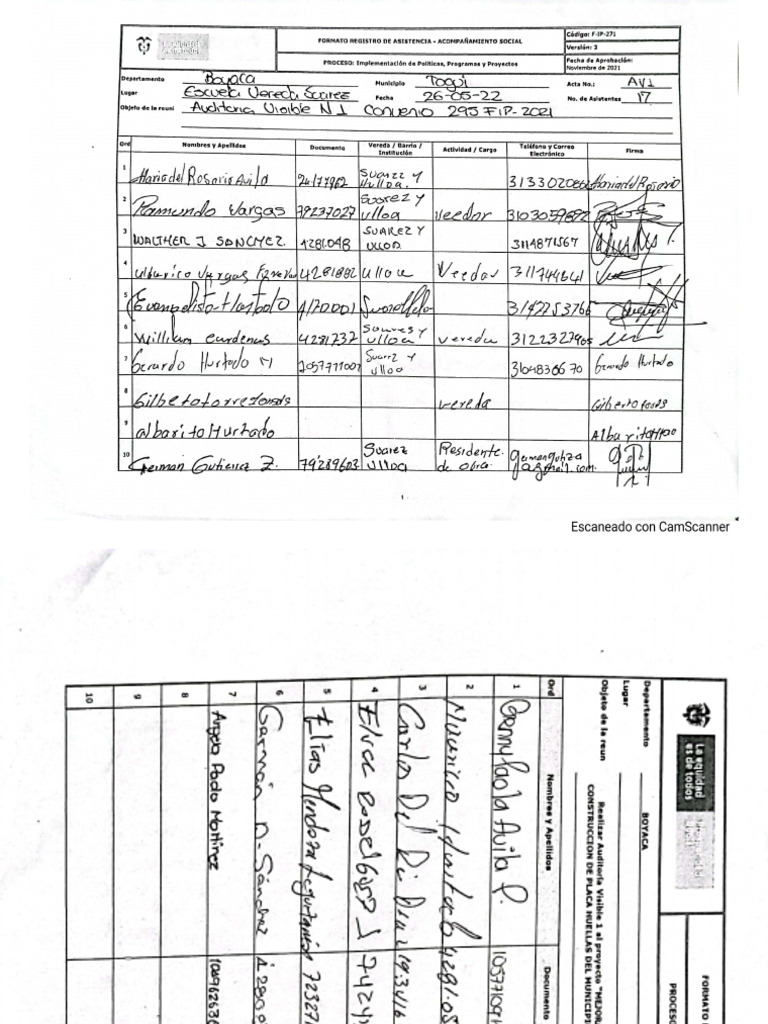 FORMATO REGISTRO DE ASISTENCIA - ACOMPAÑAMIENTO SOCIAL
Código: F-IP-271
Versión: 3
PROCESO: Implementación de Políticas, Programas y Proyectos
Fecha de Aprobación:
Noviembre de 2021
Departamento Boyaca Municipio Togui Acta No.: AV1
Lugar Escuela Vereda Suarez Fecha 26-05-22 No. de Asistentes 17
Objeto de la reuni Auditoria Visible N 1 Convenio 295 FIP-2021
Ord Nombres y Apellidos Documento Vereda / Barrio / Institución Actividad / Cargo Teléfono y Correo Electrónico Firma
1 Maria del Rosario Avila Suarez y Ulloa. Maria del Rosario
2 Raimundo Vargas 79237027 Suarez y Ulloa Veedor
3 WALTHER J SANCHEZ. 4281048 SUAREZ Y ULLOA 3114871567
4 Vargas 4281882 Ulloa Veedor 311744641
5 Evangelista Hurtado 4170001 3142753766
6 William Cardenas 4281737 Suares y Ulloa vereda
7 Gerardo Hurtado M Suarez y Ulloa 3104830670 Gerardo Hurtado
8 Gilberto vereda Gilberto
9 albarito Hurtado Albarito
10 German Gutierrez Z. 79289603 Suarez Ulloa Residente de obra.
1
Escaneado con CamScanner
La equidad es de todos
FORMATO
PROCESO
Departamento BOYACA
Lugar
Objeto de la reun Realizar Auditoría Visible 1 al proyecto "MEJOR
CONSTRUCCION DE PLACA HUELLAS DEL MUNICIPI
Ord Nombres y Apellidos Documento
1 Avila P. 10577109
2 Mauricio 4281.05
3 Carlos Del Rio Diaz 19.3416
4 7424
5 Elias Mendoza 72327
6 German D. Sánchez 42809
7 Angela Paola Martinez 104962636
8
9
10